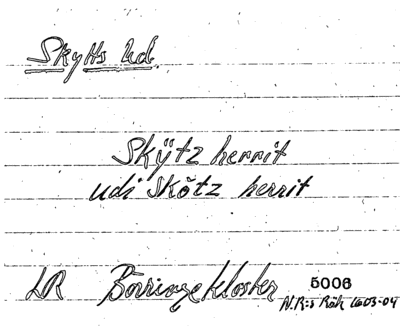 Skytts hd.
Skÿtz herrit
udi Skötz herrit
LR Börringekloster 5006
N.R:s Räk 1603-04